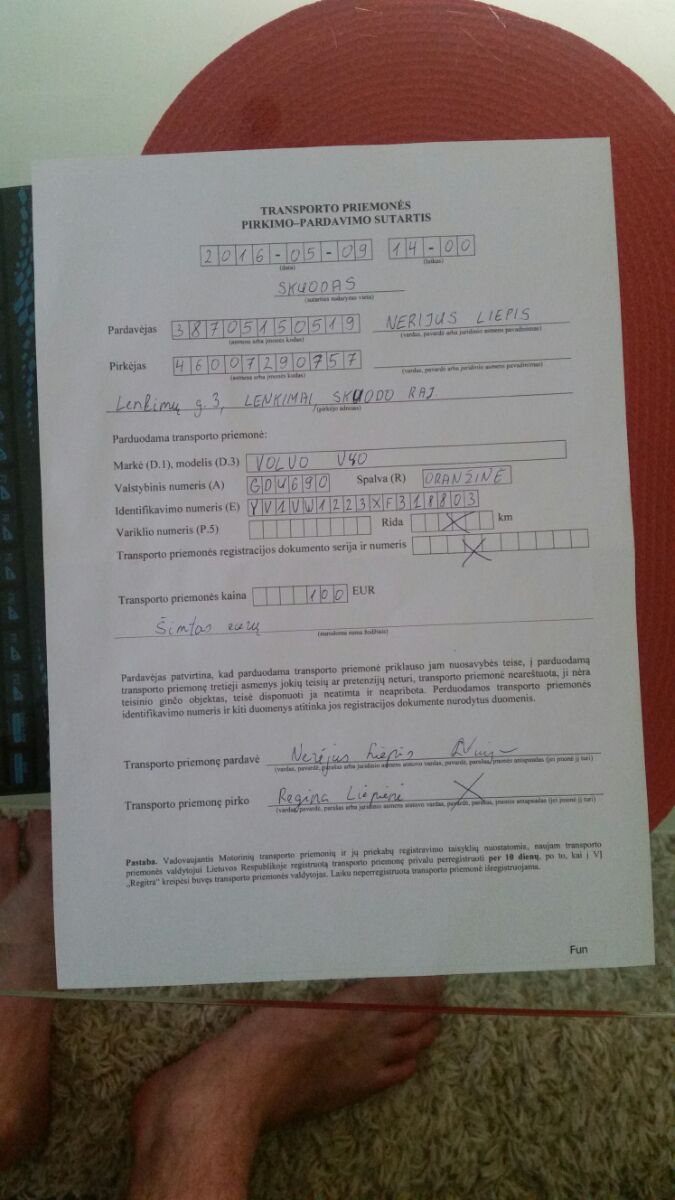 TRANSPORTO PRIEMONĖS
PIRKIMO–PARDAVIMO SUTARTIS
2016-05-09 14-00
(data) (laikas)
SKUODAS
(sutarties sudarymo vieta)
Pardavėjas 38705150519 NERIJUS LIEPIS
(asmens arba įmonės kodas) (vardas, pavardė arba juridinio asmens pavadinimas)
Pirkėjas 46007290757
(asmens arba įmonės kodas) (vardas, pavardė arba juridinio asmens pavadinimas)
Lenkimų g. 3, LENKIMAI, SKUODO RAJ.
(pirkėjo adresas)
Parduodama transporto priemonė:
Markė (D.1), modelis (D.3) VOLVO V40
Valstybinis numeris (A) GDU690 Spalva (R) ORANŽINĖ
Identifikavimo numeris (E) YV1VW1223XF318803
Variklio numeris (P.5) Rida X km
Transporto priemonės registracijos dokumento serija ir numeris X
Transporto priemonės kaina 100 EUR
Šimtas eurų
(nurodoma suma žodžiais)
Pardavėjas patvirtina, kad parduodama transporto priemonė priklauso jam nuosavybės teise, į parduodamą
transporto priemonę tretieji asmenys jokių teisių ar pretenzijų neturi, transporto priemonė neareštuota, ji nėra
teisinio ginčo objektas, teisė disponuoti ja neatimta ir neapribota. Perduodamos transporto priemonės
identifikavimo numeris ir kiti duomenys atitinka jos registracijos dokumente nurodytus duomenis.
Transporto priemonę pardavė Nerijus Liepis
(vardas, pavardė, parašas arba juridinio asmens atstovo vardas, pavardė, parašas, įmonės antspaudas (jei įmonė jį turi)
Transporto priemonę pirko Regina Liepienė X
(vardas, pavardė, parašas arba juridinio asmens atstovo vardas, pavardė, parašas, įmonės antspaudas (jei įmonė jį turi)
Pastaba. Vadovaujantis Motorinių transporto priemonių ir jų priekabų registravimo taisyklių nuostatomis, naujam transporto
priemonės valdytojui Lietuvos Respublikoje registruotą transporto priemonę privalu perregistruoti per 10 dienų, po to, kai į VĮ
„Regitra“ kreipėsi buvęs transporto priemonės valdytojas. Laiku neperregistruota transporto priemonė išregistruojama.
Fun